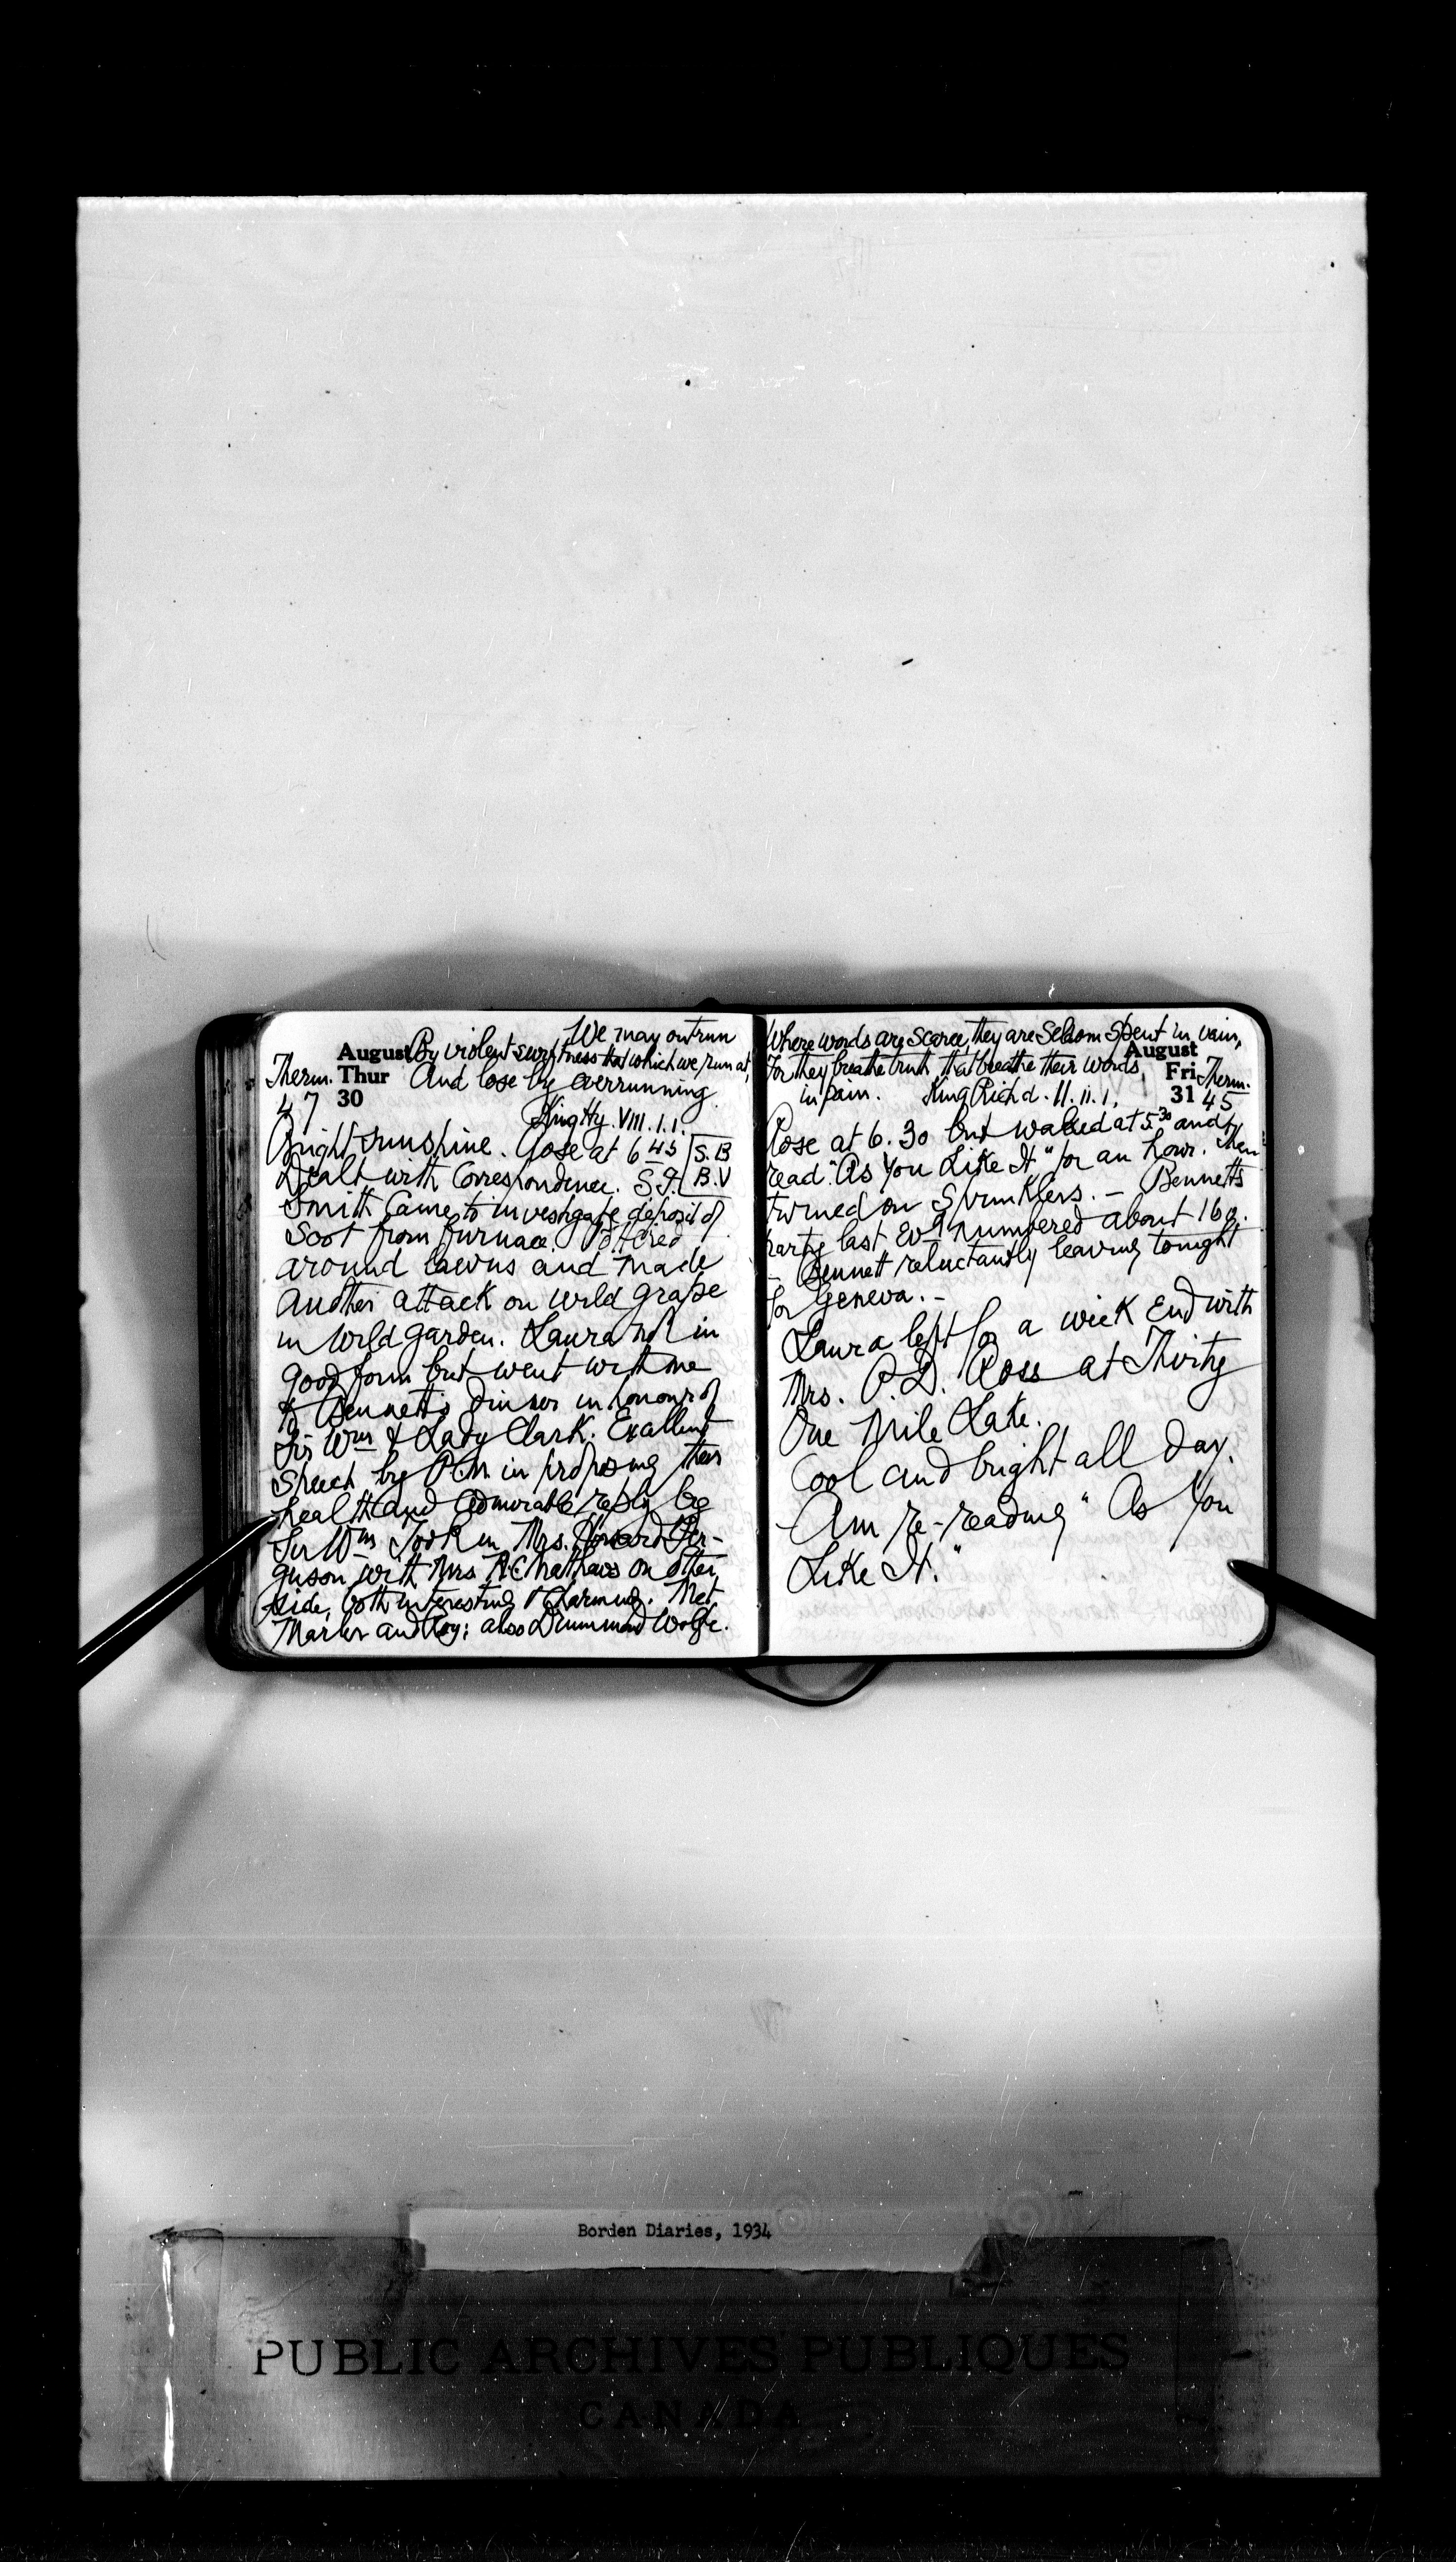 We may outrun
August By violent swiftness that which we run at,
Therm. Thur And lose by overrunning.
47 30 King Hy. VIII. 1.1.
Bright sunshine. Rose at 6 45 S.B
Dealt with Correspondence. S.G. B.V
Smith came to investigate deposit of
Soot from furnace. Pottered
around lawns and made
another attack on wild grape
in wild garden. Laura not in
good form but went with me
to Bennett's dinner in honour of
Sir Wm & Lady Clark. Excellent
speech by P.M in proposing their
health and admirable reply by
Sir Wm. Took in Mrs. Howard Fer-
guson with Mrs A.C Mathews on other
side, both interesting & charming. Met
Marler and Roy; also Drummond Wolfe.
Where words are scarce, they are seldom spent in vain,
August
For they breathe truth that breathe their words
Fri Therm.
in pain. King Rich d. II. ii. 1, 31 45
Rose at 6.30 but waked at 5.30 and
read "As You Like It" for an hour. Then
turned on Sprinklers. – Bennetts
party last Evg numbered about 160.
– Bennett reluctantly leaving tonight
for Geneva. –
Laura left for a week End with
Mrs. P.D. Ross at Thirty
One Mile Lake.
Cool and bright all day.
Am re-reading "As You
Like It."
Borden Diaries, 1934
PUBLIC ARCHIVES PUBLIQUES
CANADA